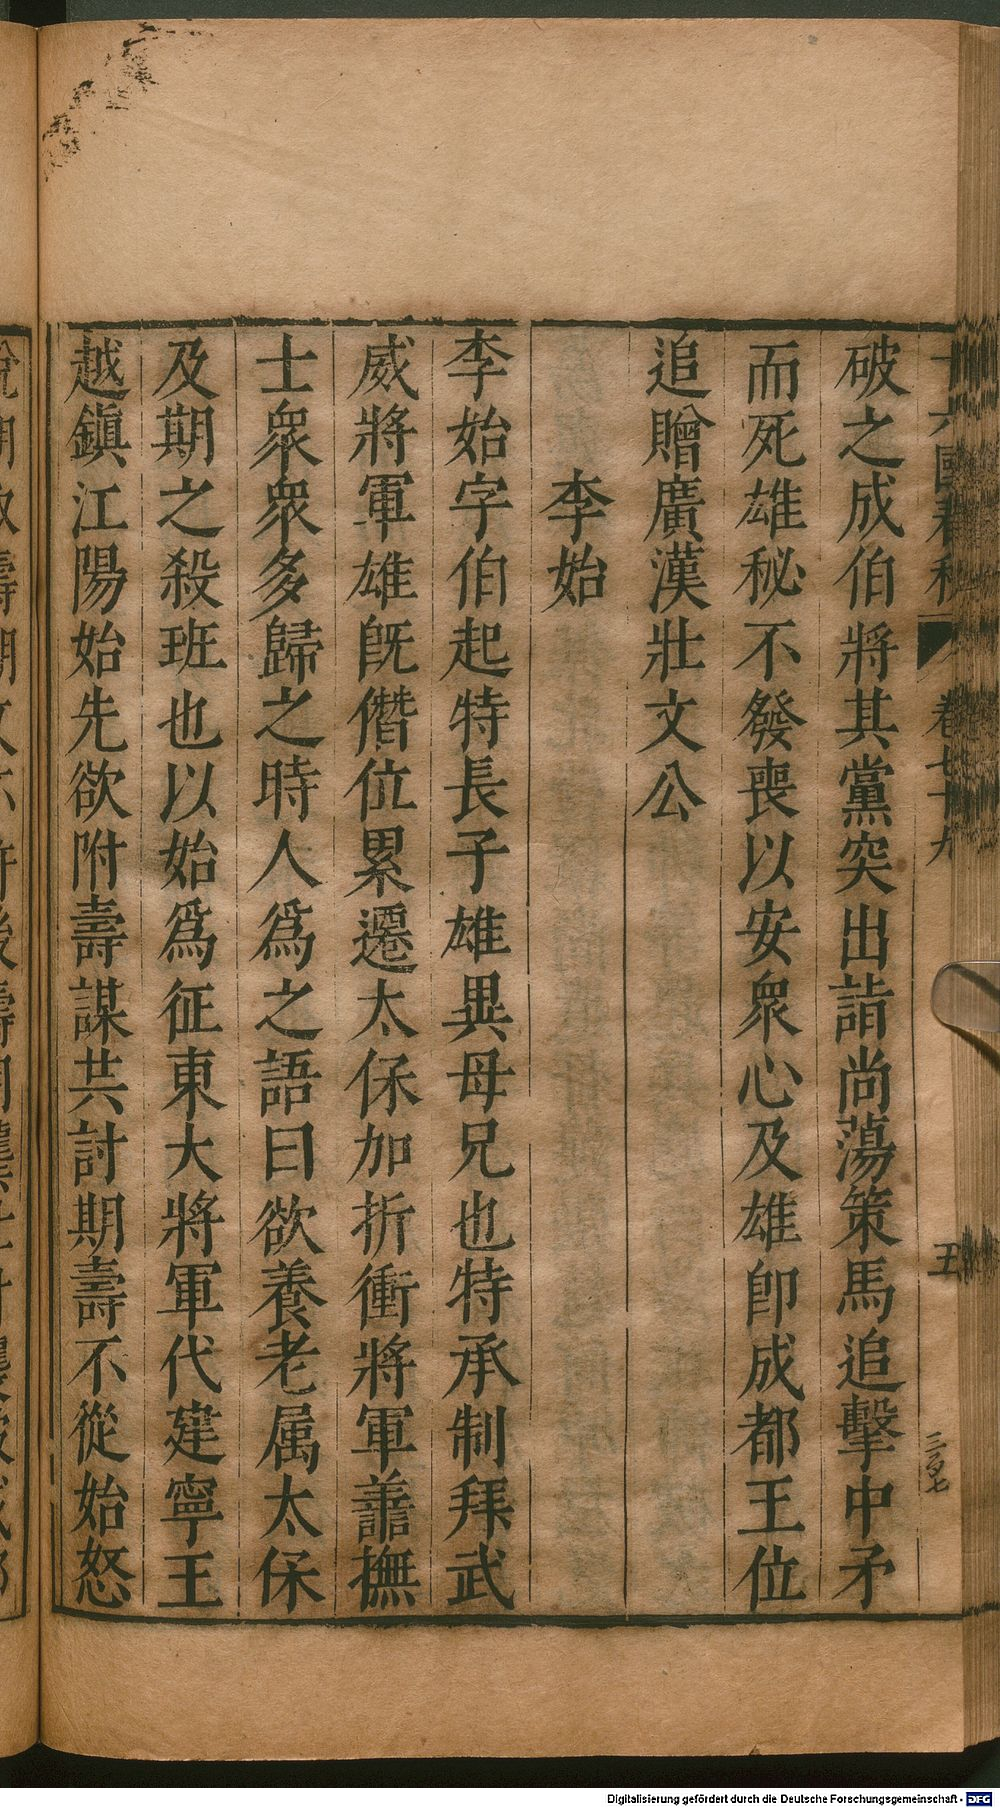 十六國春秋 卷七十九 五
三百七
破之成伯將其黨突出詣尚蕩策馬追擊中矛
而死雄秘不發喪以安衆心及雄卽成都王位
追贈廣漢壯文公
李始
李始字伯起特長子雄異母兄也特承制拜武
威將軍雄旣僭位累遷太保加折衝將軍善撫
士衆衆多歸之時人爲之語曰欲養老属太保
及期之殺班也以始爲征東大將軍代建寧王
越鎭江陽始先欲附壽謀共討期壽不從始怒
Digitalisierung gefördert durch die Deutsche Forschungsgemeinschaft - DFG